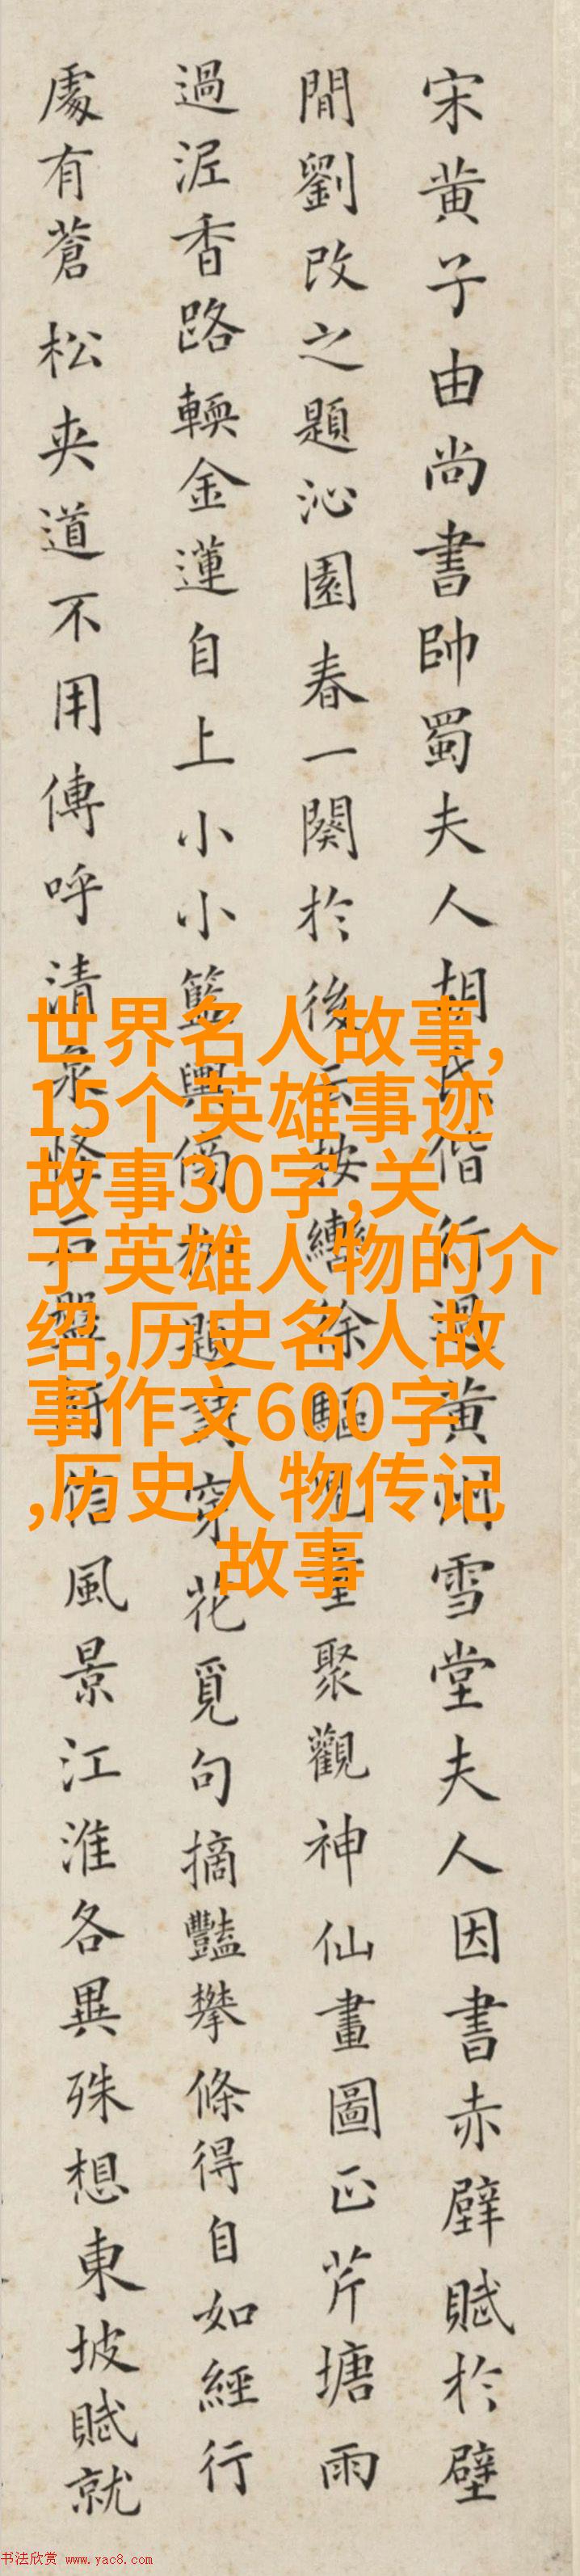 宋黄子由尚書帥蜀夫人胡氏偕行過黄州雪堂夫人因書赤壁賦於壁
間劉改之題沁園春一闋於後云按轡徐驅兒童聚觀神仙畫圖正芹塘雨
過泥香路輭金蓮自上小小籃輿傍柳題詩穿花覓句摘豔攀條得自如經行
處有蒼松夾道不用傳呼清泉怪石盤紆信風景江淮各異殊想東坡賦就
世界名人故事,
15个英雄事迹
故事30字,关
于英雄人物的介
绍,历史名人故
事作文600字
,历史人物传记
故事
书法欣赏 www.yac8.com